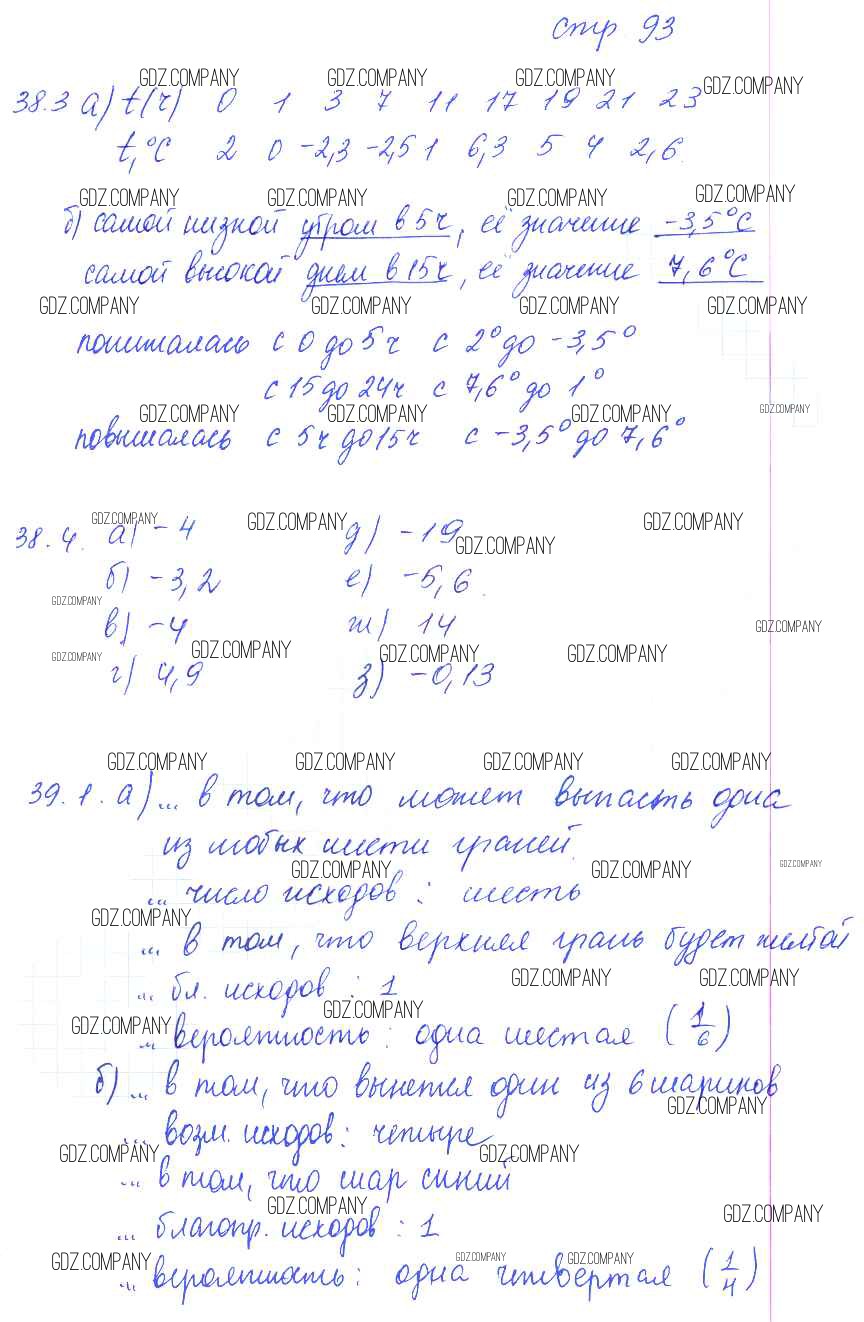 стр 93
GDZ.COMPANY GDZ.COMPANY GDZ.COMPANY GDZ.COMPANY
38.3 а) t(ч) 0 1 3 7 11 17 19 21 23
t,°C 2 0 -2,3 -2,5 1 6,3 5 4 2,6
GDZ.COMPANY GDZ.COMPANY GDZ.COMPANY GDZ.COMPANY
б) самой низкой утром в 5ч, её значение -3,5°C
самой высокой днем в 15ч, её значение 7,6°C
GDZ.COMPANY GDZ.COMPANY GDZ.COMPANY GDZ.COMPANY
понималась с 0 до 5ч с 2° до -3,5°
с 15 до 24ч с 7,6° до 1°
GDZ.COMPANY GDZ.COMPANY GDZ.COMPANY GDZ.COMPANY
повышалась с 5ч до 15ч с -3,5° до 7,6°
GDZ.COMPANY GDZ.COMPANY GDZ.COMPANY
38.4. а) -4 д) -19
GDZ.COMPANY
б) -3,2 е) -5,6
GDZ.COMPANY
в) -4 ж) 14
GDZ.COMPANY
GDZ.COMPANY GDZ.COMPANY GDZ.COMPANY GDZ.COMPANY
г) 4,9 з) -0,13
GDZ.COMPANY GDZ.COMPANY GDZ.COMPANY GDZ.COMPANY
39.1. а) ... в том, что может выпасть одна
из любых шести граней
GDZ.COMPANY GDZ.COMPANY GDZ.COMPANY
... число исходов: шесть
GDZ.COMPANY
... в том, что верхняя грань будет желтой
GDZ.COMPANY GDZ.COMPANY
... бл. исходов : 1
GDZ.COMPANY GDZ.COMPANY
... вероятность: одна шестая (1/6)
б) ... в том, что вынется один из 6 шариков
GDZ.COMPANY
... возм. исходов: четыре
GDZ.COMPANY GDZ.COMPANY
... в том, что шар синий
GDZ.COMPANY GDZ.COMPANY
... благопр. исходов : 1
GDZ.COMPANY GDZ.COMPANY GDZ.COMPANY
... вероятность: одна четвертая (1/4)